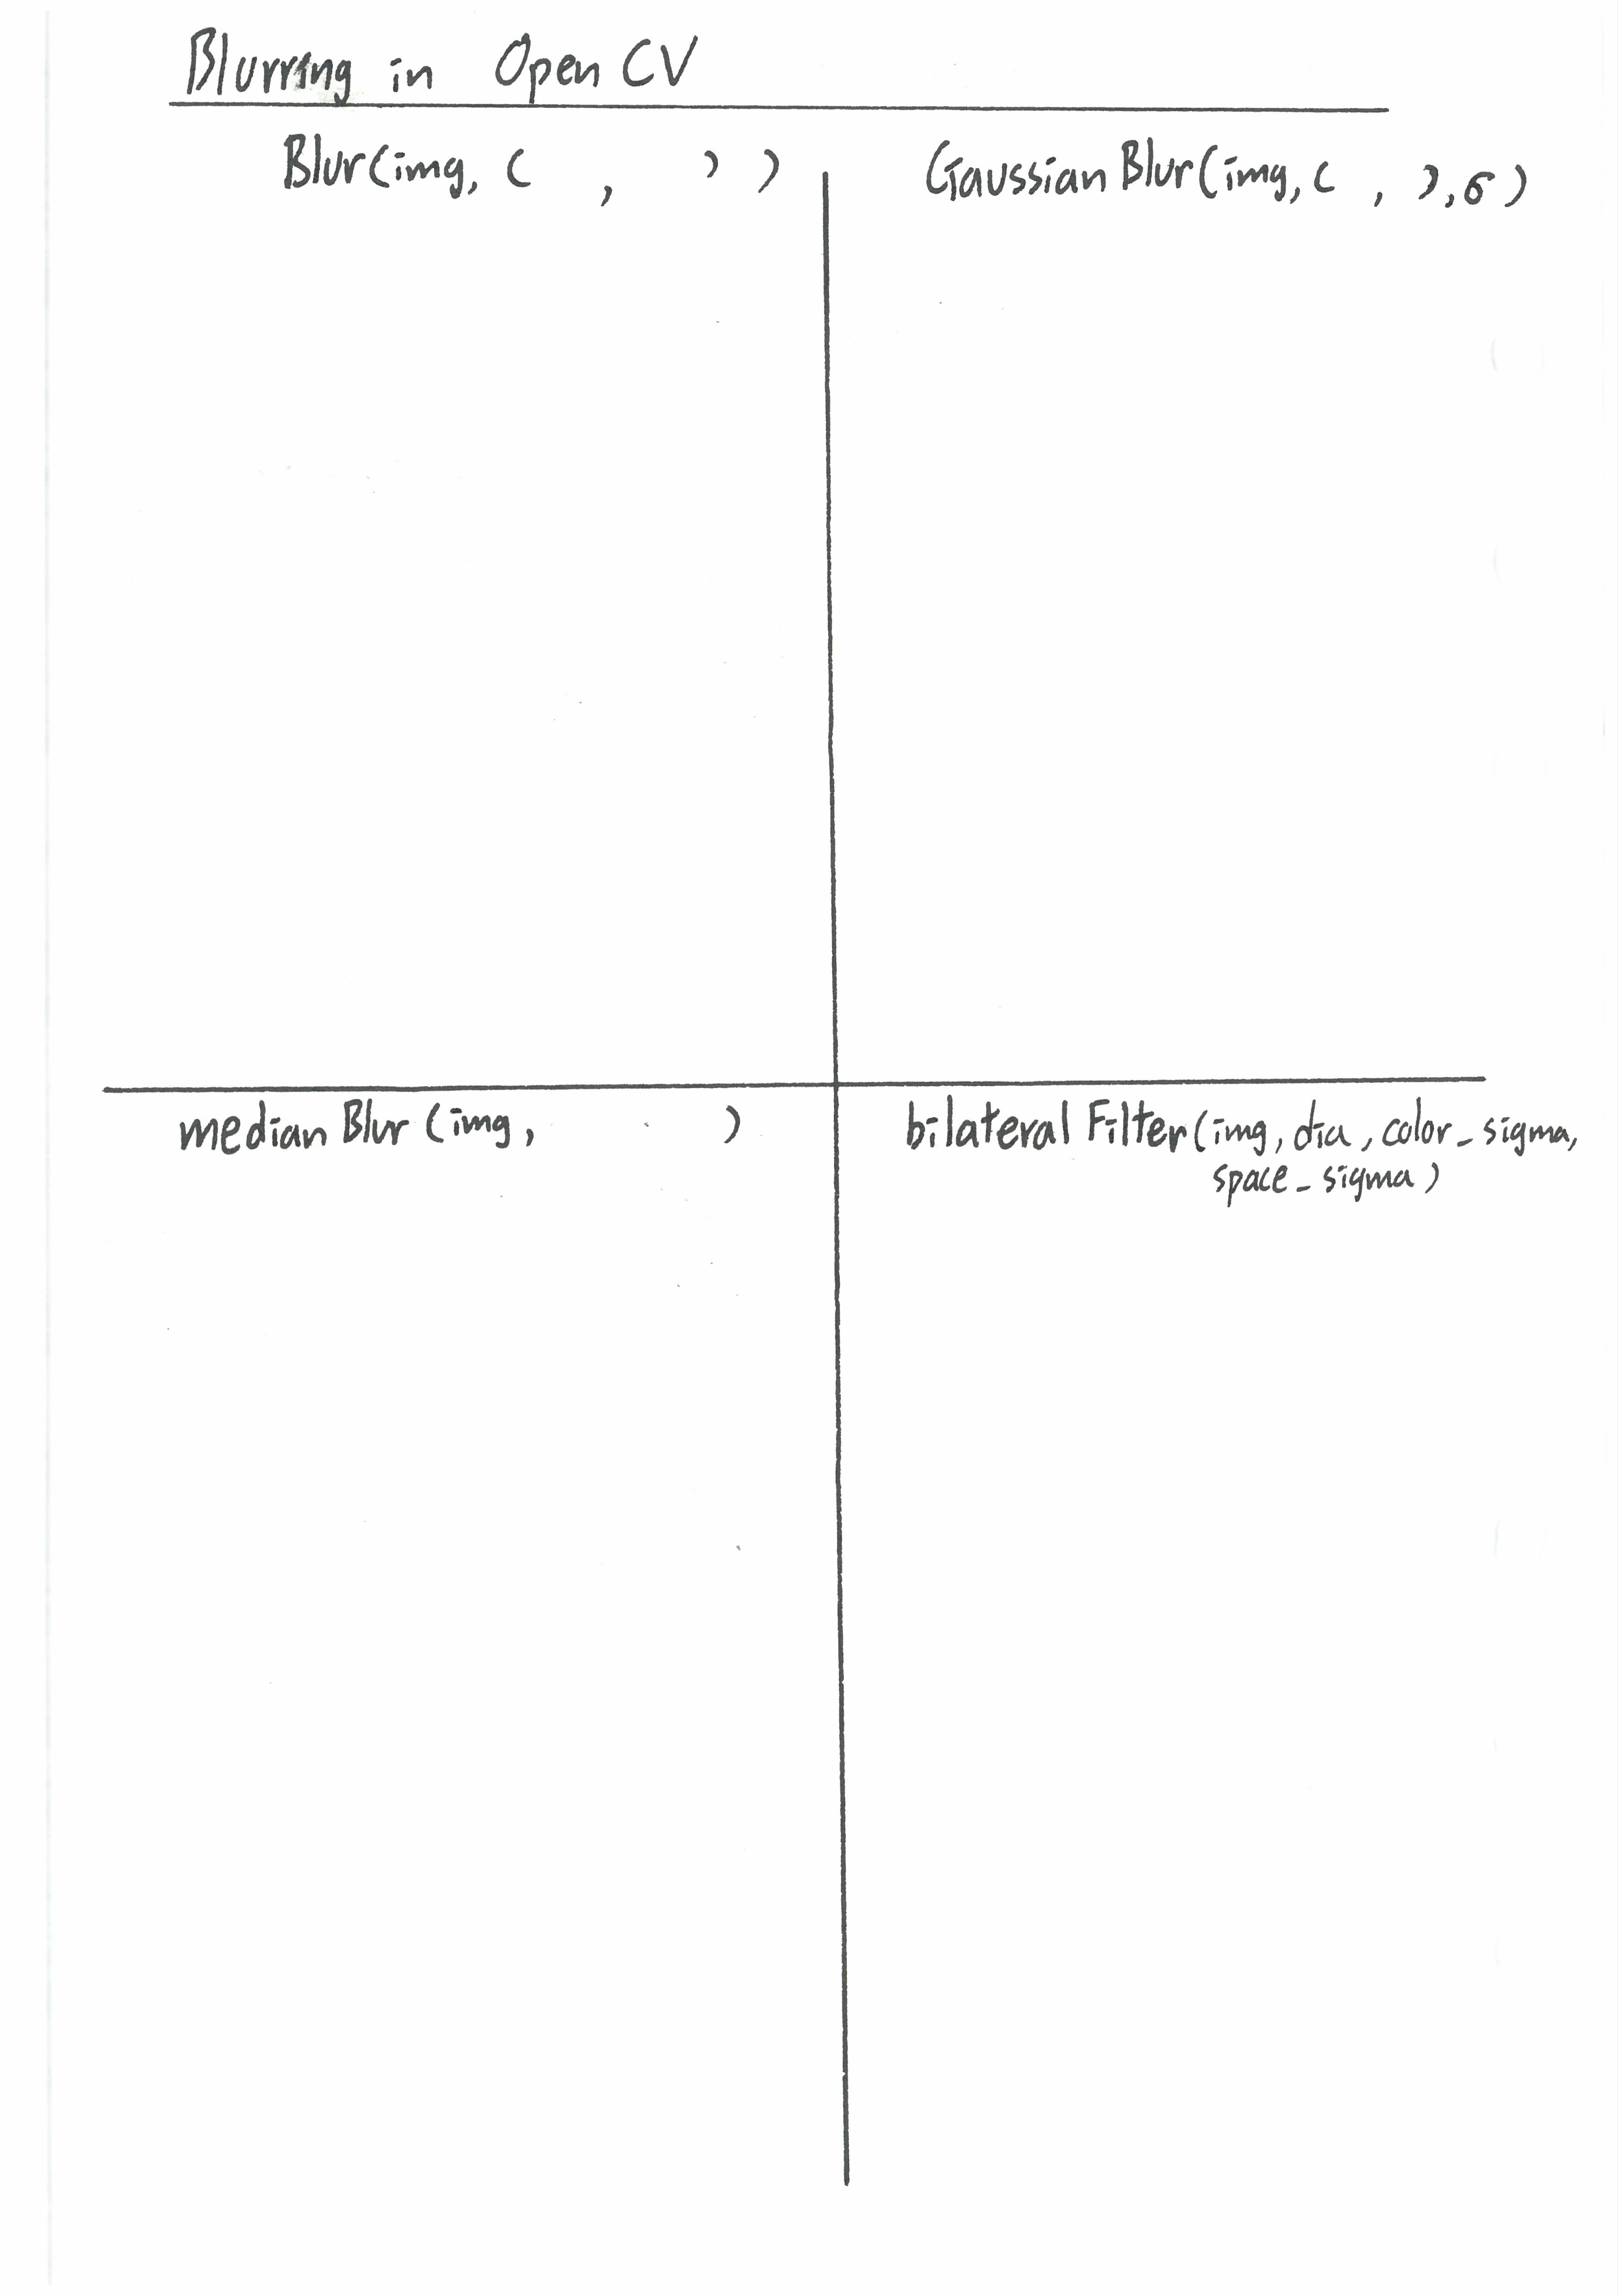 Blurring in OpenCV
Blur(img, ( , ) )
GaussianBlur(img, ( , ), σ)
medianBlur(img, )
bilateralFilter(img, dia, color_sigma,
space_sigma)